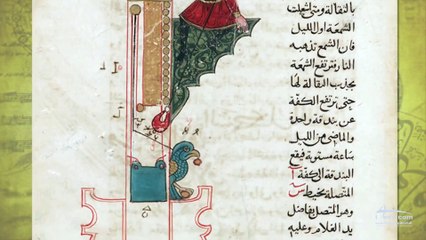 بالثقالة ومتى اشعلت
الشمعة اول الليل
فان الشمع تذهبه
النار وترتفع الشمعة
بجذب الثقالة لها
حتى ترتفع الكفة
عن بندقة واحدة
والماضى من الليل
ساعة مستوية فيقع
البندقة الى الكفة
المتصلة بخيط
وهو المتصل بفاضل
يد الغلام وعليه